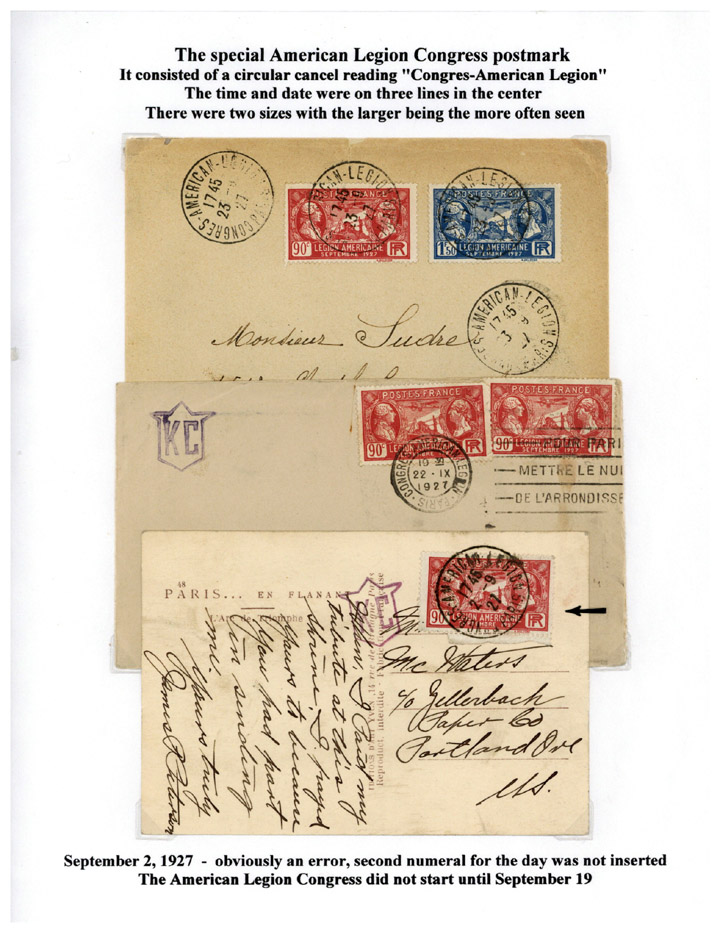 The special American Legion Congress postmark
It consisted of a circular cancel reading "Congres-American Legion"
The time and date were on three lines in the center
There were two sizes with the larger being the more often seen
CONGRES-AMERICAN-LEGION
17 45
23 - 9
27
POSTES FRANCE
90c
LEGION AMERICAINE
SEPTEMBRE 1927
RF
POSTES FRANCE
1f50
LEGION AMERICAINE
SEPTEMBRE 1927
RF
AMERICAN-LEGION
17 45
Monsieur Sudre
KC
POSTES FRANCE
90c
RF
POSTES FRANCE
90c
SEPTEMBRE 1927
22 - IX
1927
PARIS
POUR PARI
METTRE LE NU
DE L'ARRONDISSE
48
PARIS... EN FLANANT
L'Arc de Triomphe
90c
LEGION AMERICAINE
SEPTEMBRE 1927
RF
AMERICAN-LEGION
17 45
2 - 9
27
I Paid my
tribute at this
shrine. I prayed
Yours to because
You had part
in sending
me.
Yours truly
James R Peterson
Reproduct. interdite
Mc Waters
c/o Zellerbach
Paper Co
Portland Ore
US.
September 2, 1927 - obviously an error, second numeral for the day was not inserted
The American Legion Congress did not start until September 19